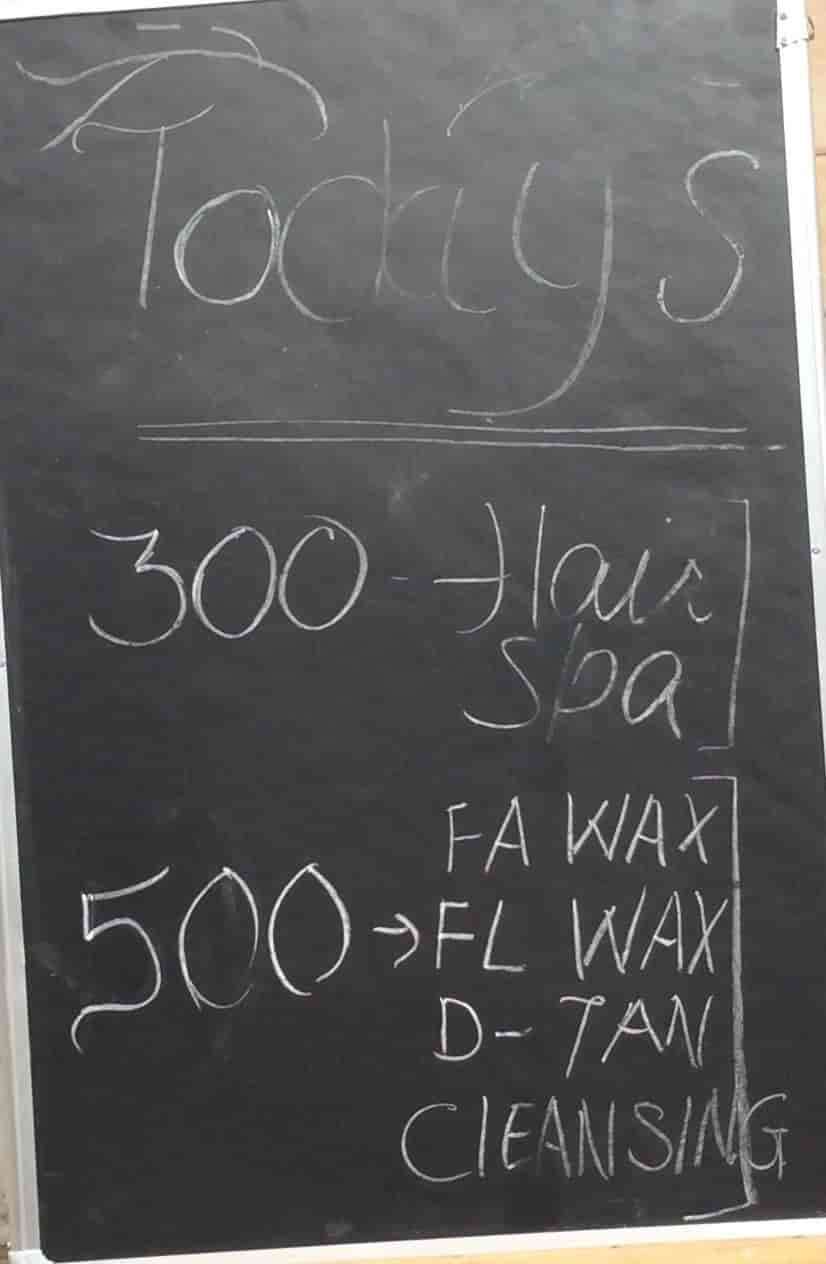 Today's
300 - Hair
Spa
FA WAX
500 → FL WAX
D- TAN
ClEANSING